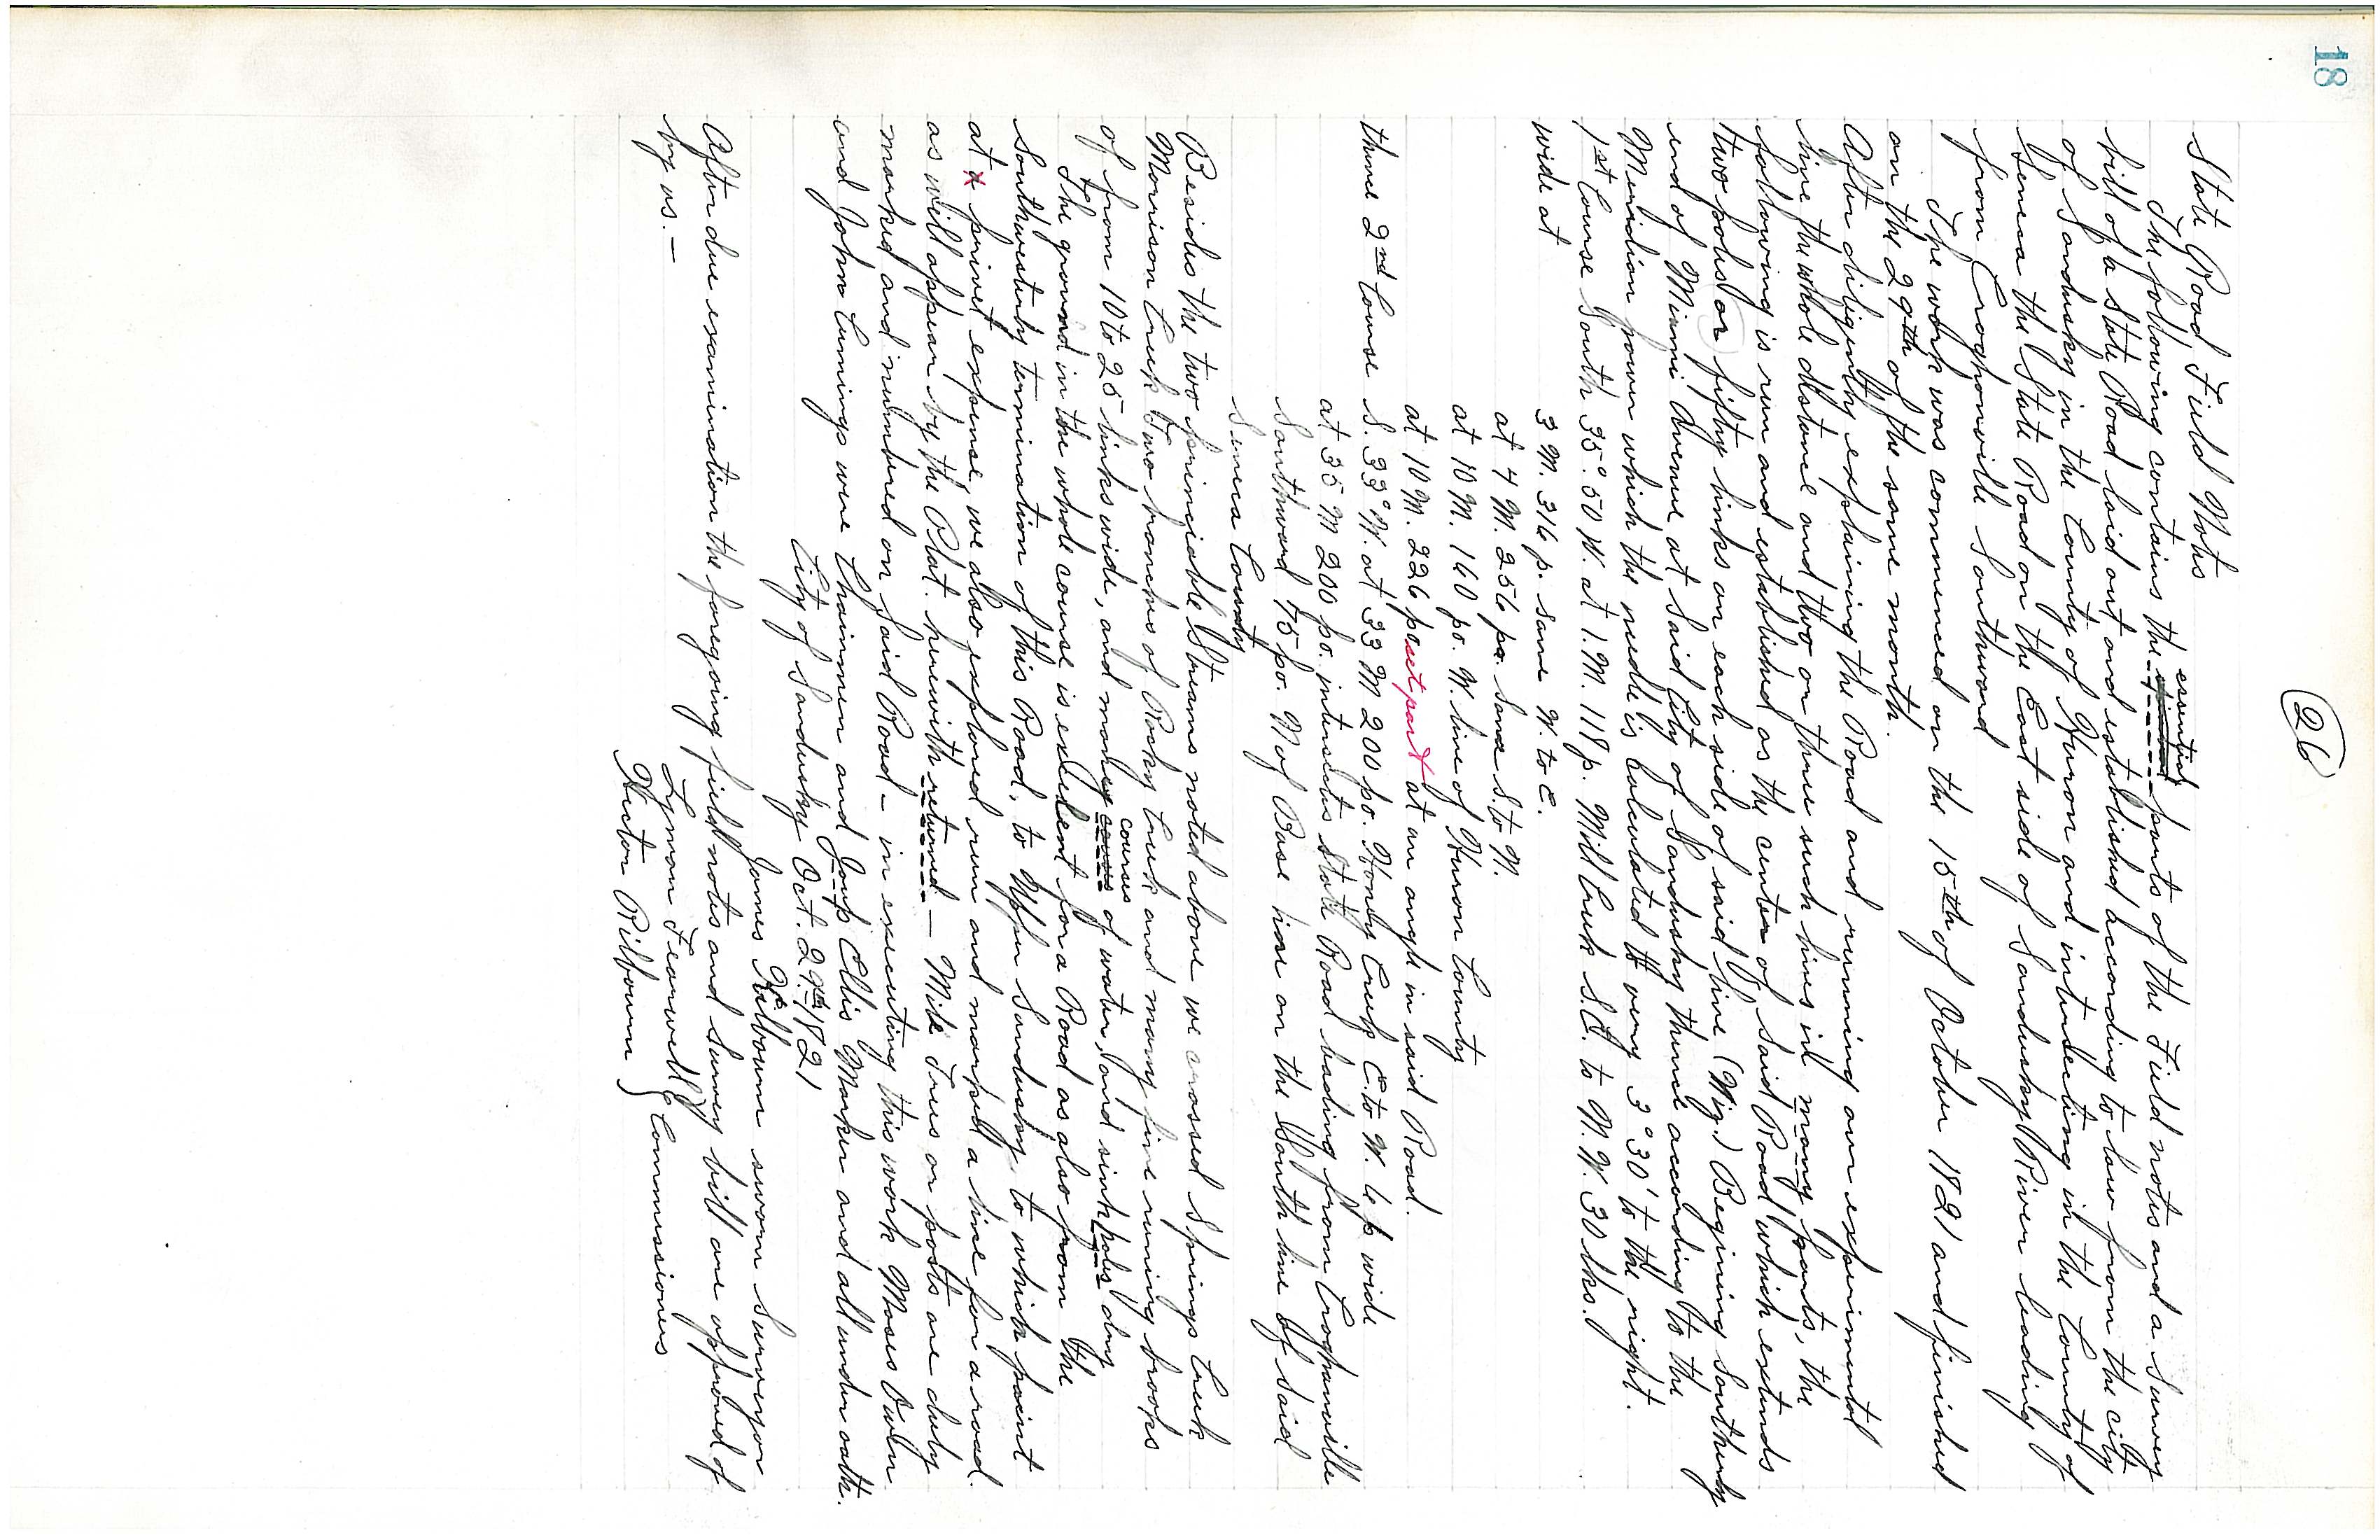 18
26
State Road Field Notes
The following contains the essential parts of the Field notes and a survey
bill of a State Road laid out and established according to law from the city
of Sandusky in the County of Huron and intersecting in the County of
Seneca the State Road on the East side of Sandusky River leading
from Croghanville Southward
The work was commenced on the 15th of October 1821 and finished
on the 29th of the same month.
After diligently explaining the Road and running our experimental
line the whole distance and two or three such lines in many parts, the
following is run and established as the center of said Road which extends
two poles or fifty links on each side of said line (Viz.) Begining Southerly
end of Miami Avenue at said City of Sandusky thence according to the
Meridian from which the needle is calculated to vary 3° 30' to the right.
1st Course South 35° 50 W. at 1. M. 118 p. Mill Creek S.E. to N. W. 30 lks.
wide at
3 M. 316 p. same W. to E.
at 4 M. 256 po. same S. to N.
at 10 M. 160 po. W. line of Huron County
at 10 M. 226 po set post at an angle in said Road.
thence 2nd Course S. 33° W. at 33 M 200 po. Honey Creek E. to W. 6 p wide
at 35 M 200 po. intersects State Road leading from Croghanville
Southward 75 po. N of Base line on the South line of said
Seneca County
Besides the two principable Streams noted above we crossed Springs Creek
Morrison Creek two branches of Rocky Creek and many fine running brooks
of from 10 to 25 links wide, and many courses of water, and sink holes dry
The ground in the whole course is excelent for a Road as also from the
Southwesterly termination of this Road, to Upper Sandusky, to which point
at x privet expense, we also explored run and marked a line for a road.
as will appear by the Plat. herewith returned — Mile Trees or posts are duly
marked and numbered on said Road - in executing this work Moses Buln
and John Cumings were Chainmen and Joup Ellis Marker and all under oath.
City of Sandusky Oct. 29th 1821
James Kilbourn sworn Surveyor
After due examination the foregoing field notes and survey bill are approved of
by us. —
Lyman Fearwell } Commissioners
Hector Kilbourn